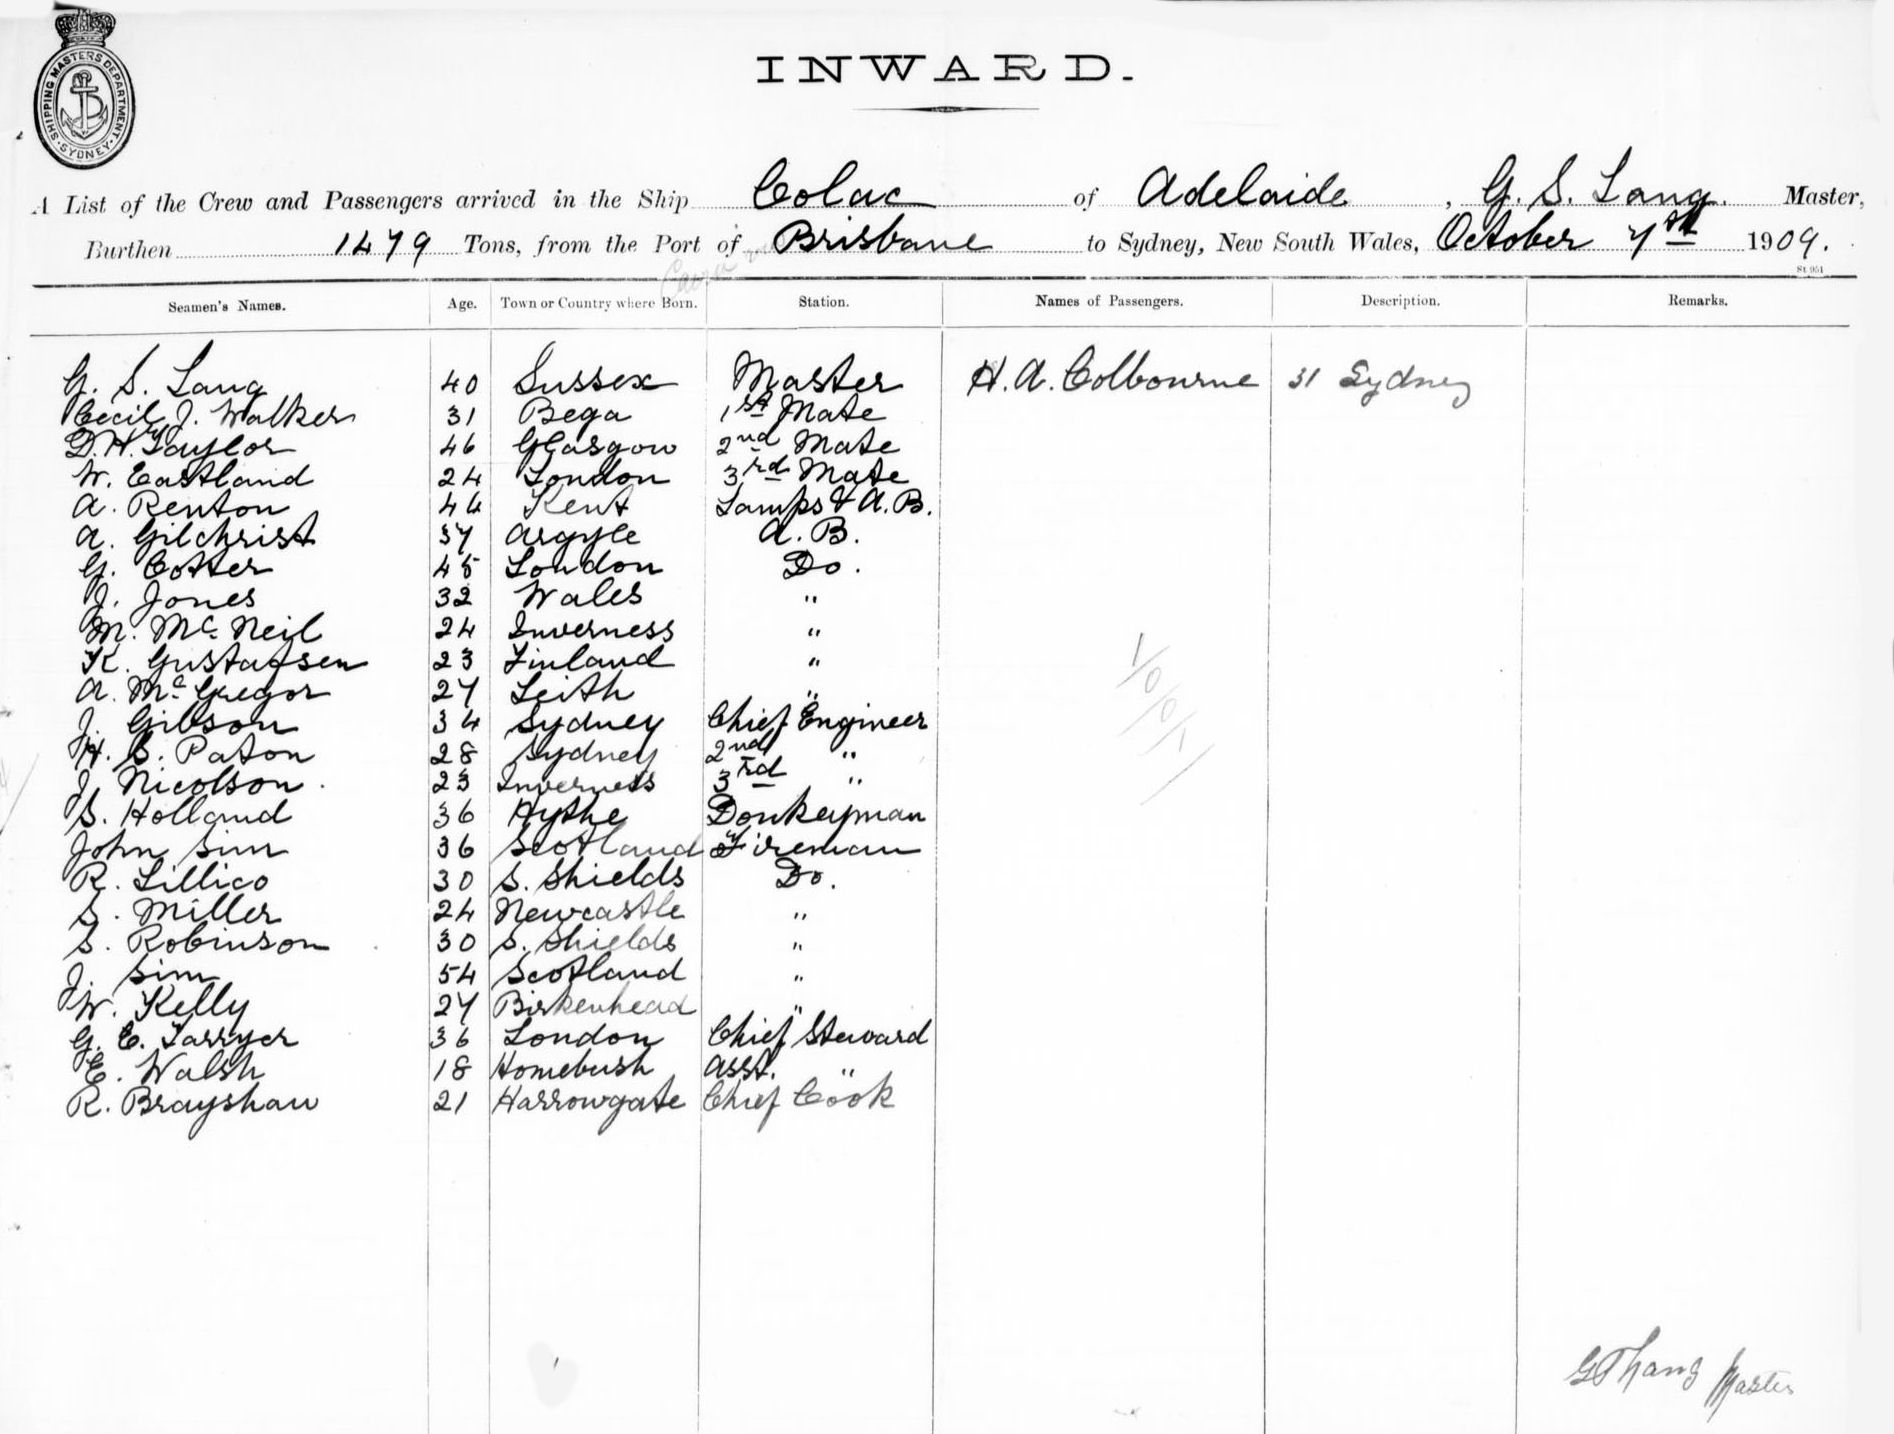 SHIPPING MASTERS DEPARTMENT
SYDNEY
INWARD.
A List of the Crew and Passengers arrived in the Ship Colac of Adelaide, G. S. Lang. Master,
Burthen 1479 Tons, from the Port of Brisbane to Sydney, New South Wales, October 7th 1909.
St 951
Seamen's Names. Age. Town or Country where Born. Station. Names of Passengers. Description. Remarks.
G. S. Lang 40 Sussex Master H. A. Colbourne 31 Sydney
Cecil J. Walker 31 Bega 1st Mate
D. H. Taylor 46 Glasgow 2nd Mate
W. Eastland 24 London 3rd Mate
A. Renton 44 Kent Lamps & A. B.
A. Gilchrist 37 Argyle A. B.
G. Cotter 45 London Do.
J. Jones 32 Wales "
M. Mc Neil 24 Inverness "
K. Gustafsen 23 Finland "
A. Mc Gregor 27 Leith "
J. Gibson 34 Sydney Chief Engineer
H. S. Paton 28 Sydney 2nd "
J. Nicolson 23 Inverness 3rd "
S. Holland 36 Hythe Donkeyman
John Sim 36 Scotland Fireman
R. Lillico 30 S. Shields Do.
S. Miller 24 Newcastle "
S. Robinson 30 S. Shields "
J. Sim 54 Scotland "
W. Kelly 27 Birkenhead "
G. E. Tarryer 36 London Chief Steward
E. Walsh 18 Homebush Asst. "
R. Brayshaw 21 Harrowgate Chief Cook
G S Lang Master